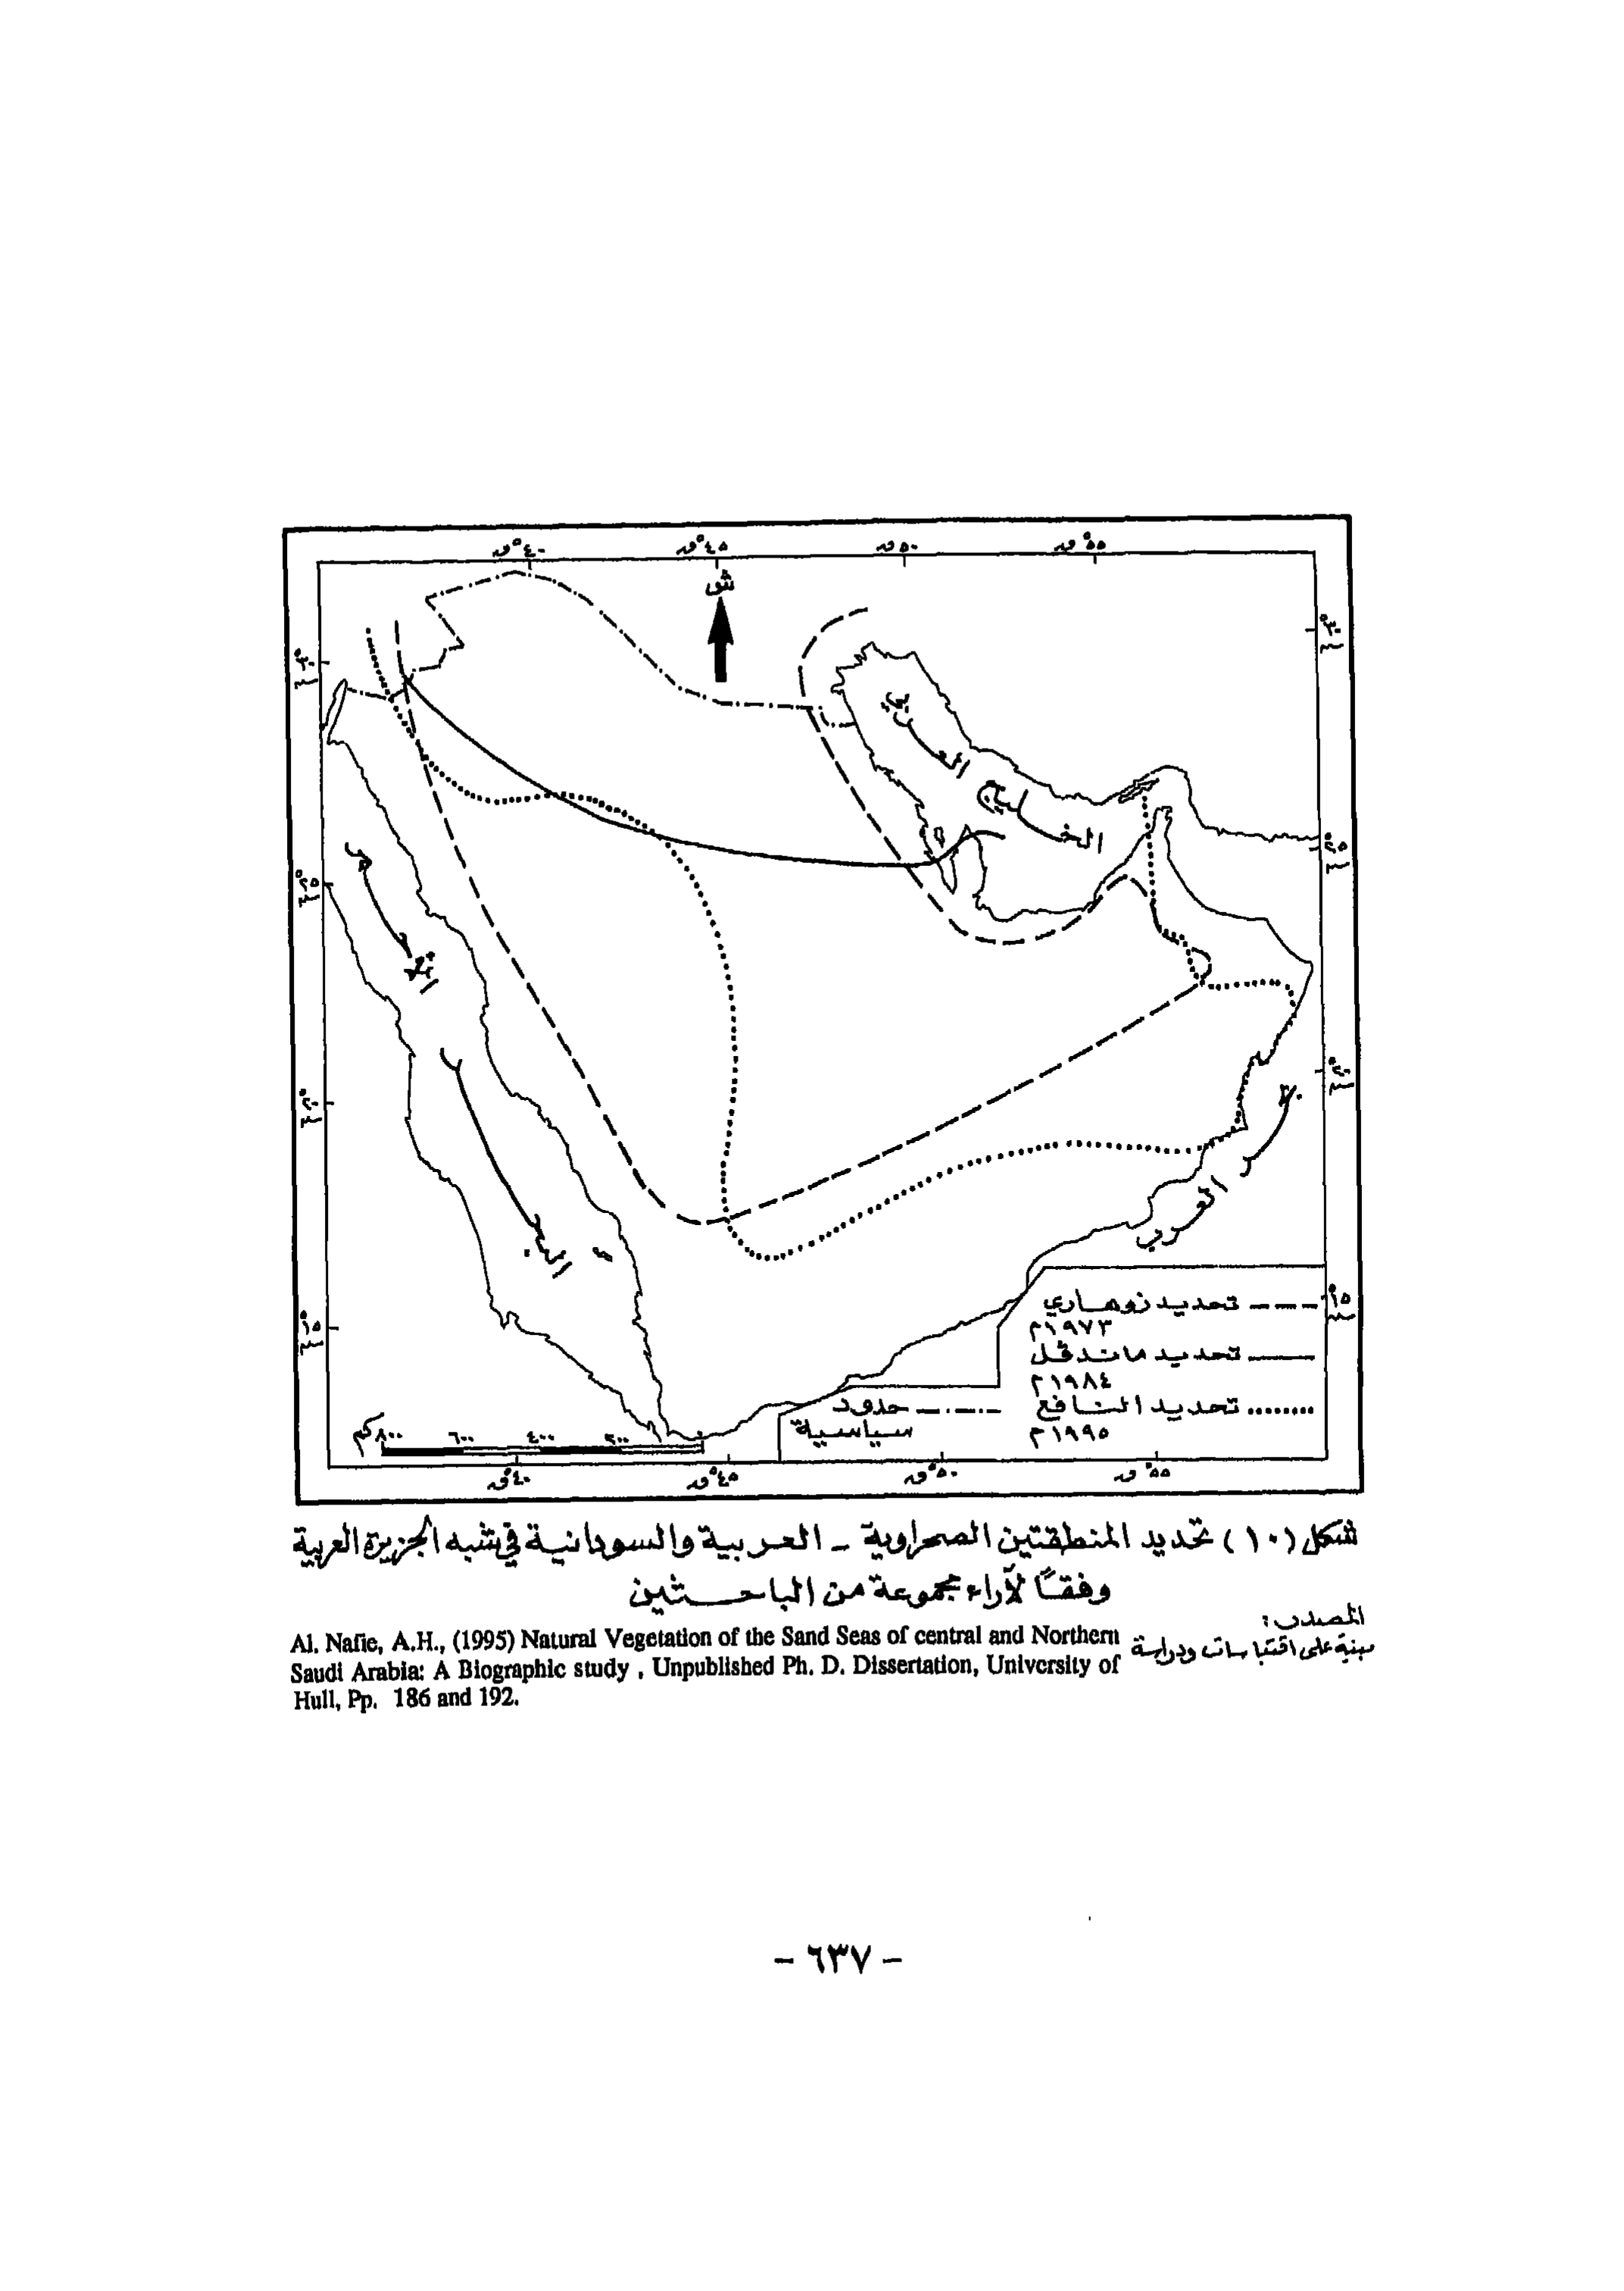 ٤٠°ق ٤٥°ق ٥٠ق ٥٥°ق
ش
٣٠° ٣٠°
٢٥° ٢٥°
٢٠° ٢٠°
١٥° ١٥°
الخليج العربي
البحر الأحمر
بحر العرب
تحديد زوهاري
١٩٧٣م
تحديد ماندفل
١٩٨٤م
تحديد النافع
١٩٩٥م
حدود
سياسية
٨٠٠كم ٦٠٠ ٤٠٠ ٢٠٠
٤٠°ق ٤٥°ق ٥٠°ق ٥٥°ق
شكل (١٠) تحديد المنطقتين الصحراوية - العربية والسودانية في شبه الجزيرة العربية
وفقاً لآراء مجموعة من الباحثين
المصدر:
مبنية على اقتباسات ودراسة
Al. Nafie, A.H., (1995) Natural Vegetation of the Sand Seas of central and Northern
Saudi Arabia: A Biographic study , Unpublished Ph. D. Dissertation, University of
Hull, Pp. 186 and 192.
- ٦٣٧ -